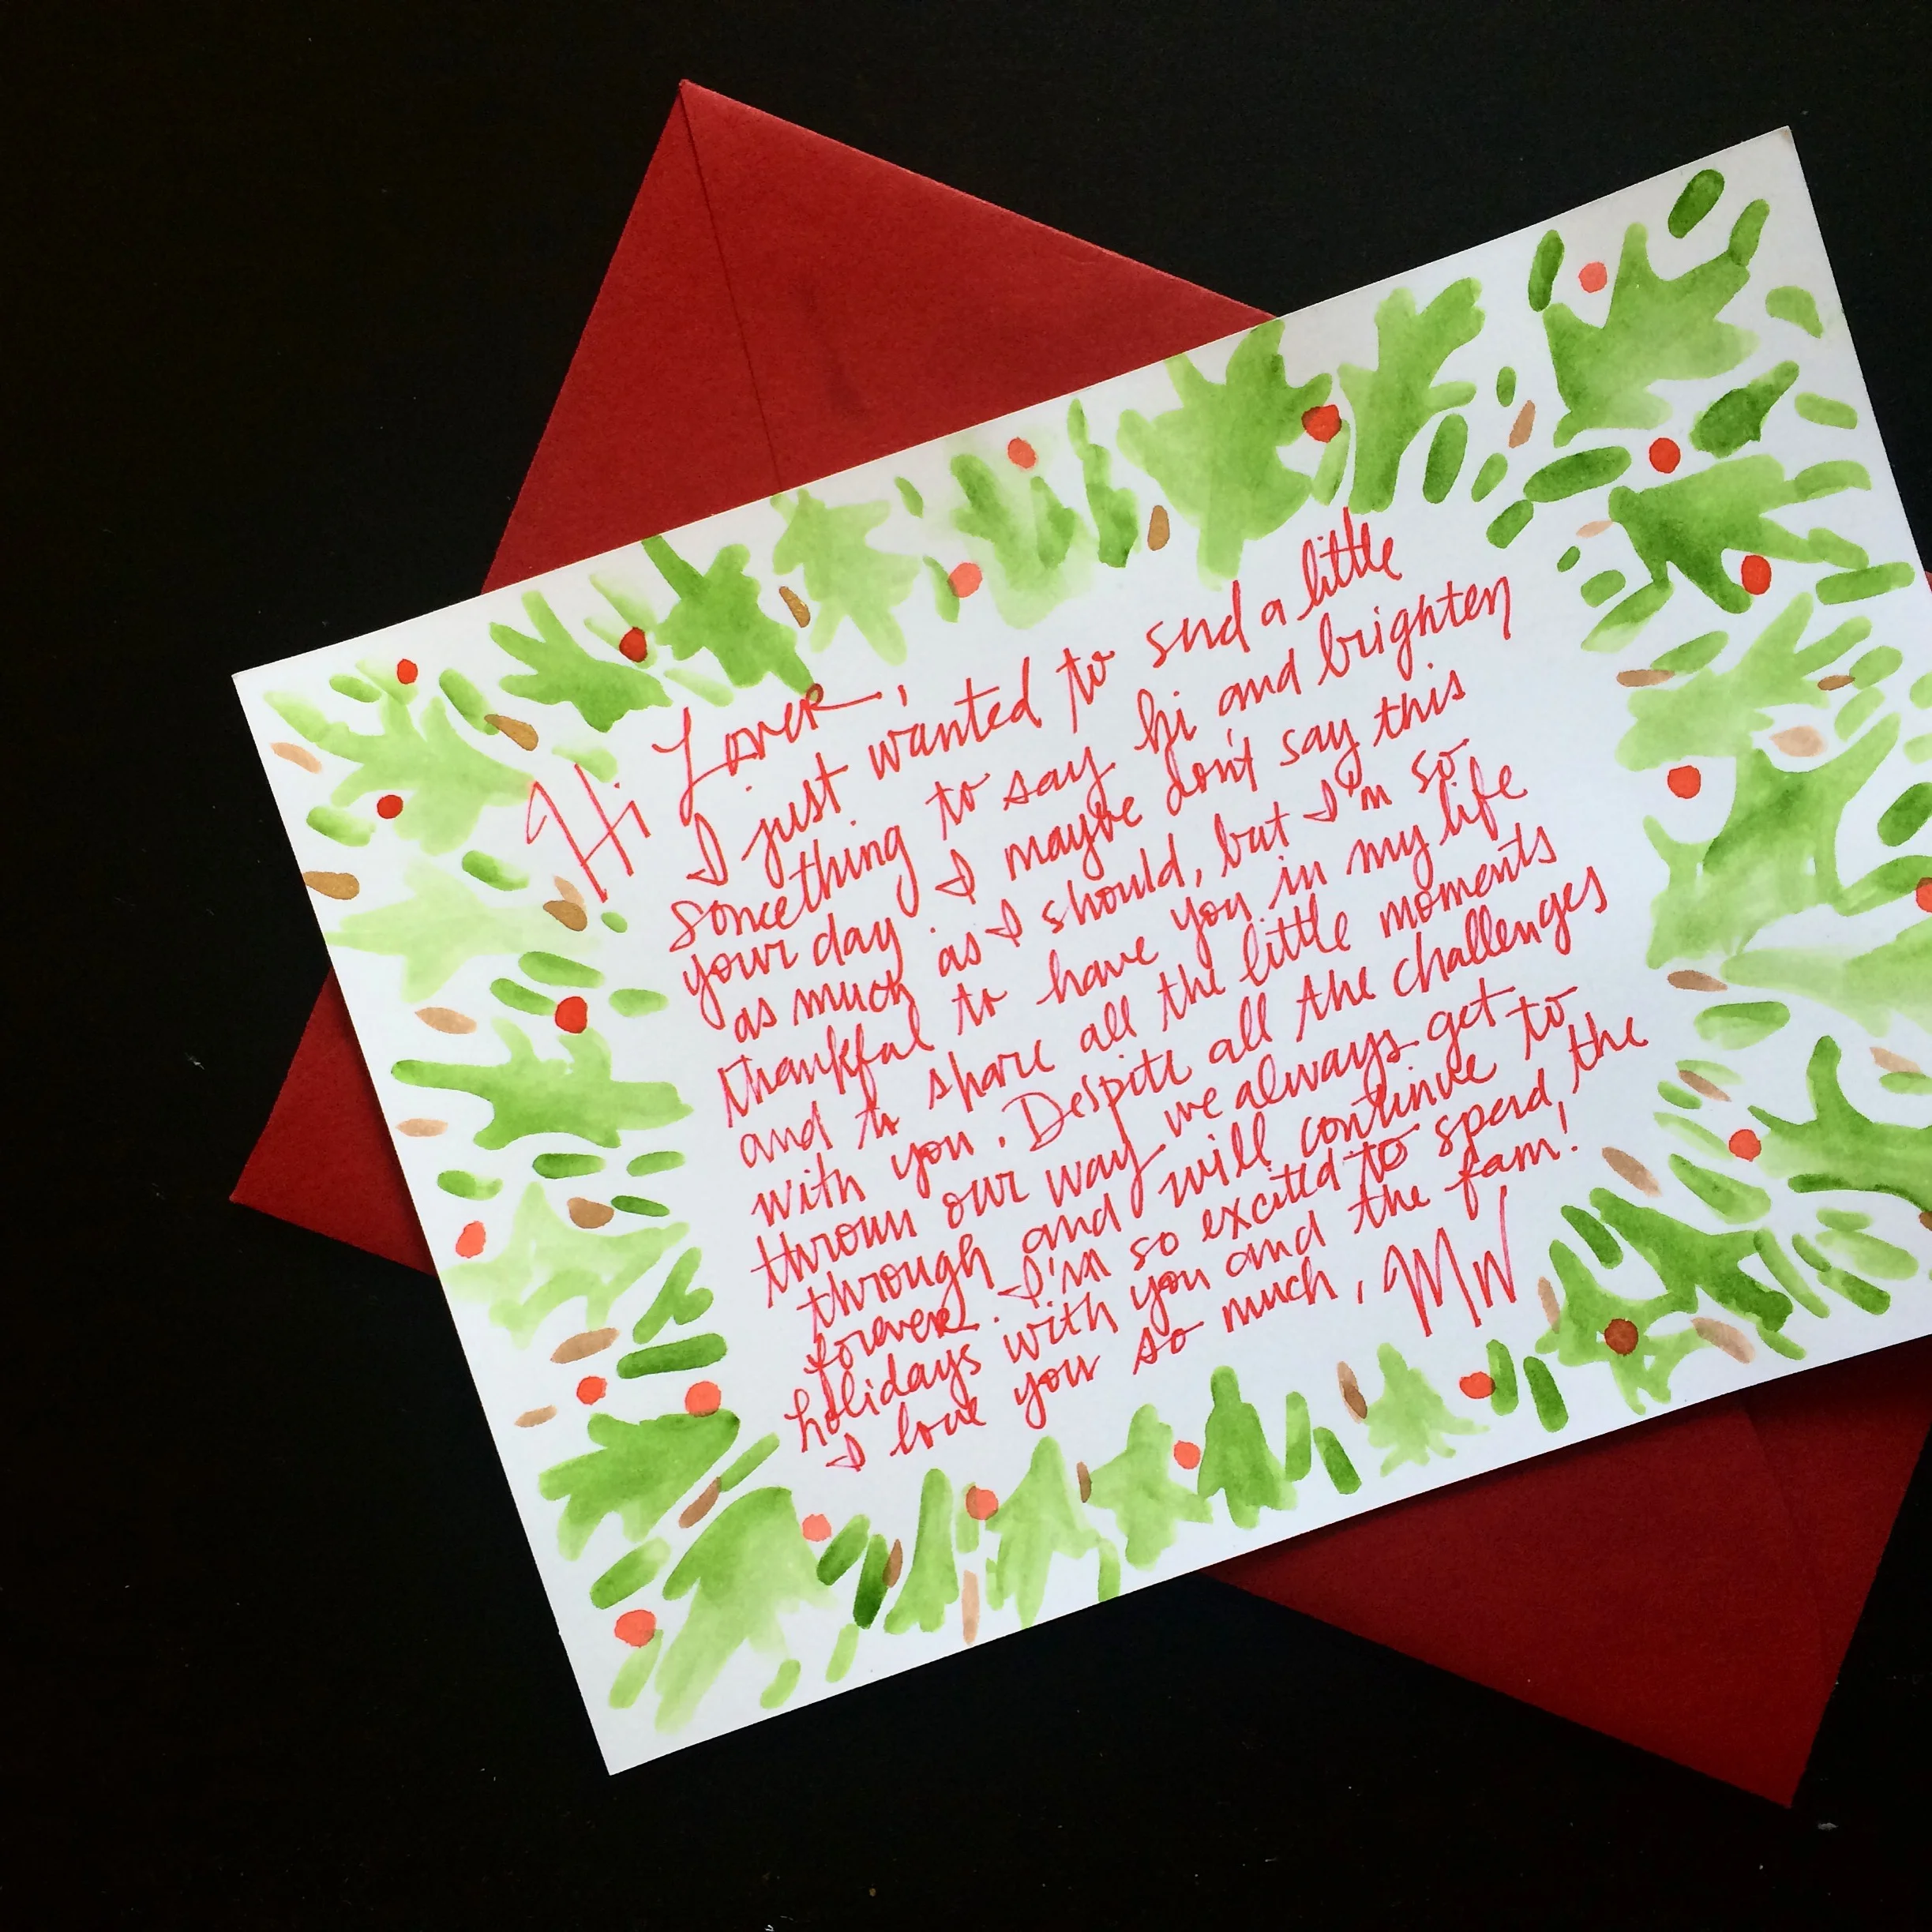 Hi Lover,
I just wanted to send a little
something to say hi and brighten
your day. I maybe don't say this
as much as I should, but I'm so
thankful to have you in my life
and to share all the little moments
with you. Despite all the challenges
thrown our way we always get
through and will continue to
forever. I'm so excited to spend the
holidays with you and the fam!
I love you so much, MW